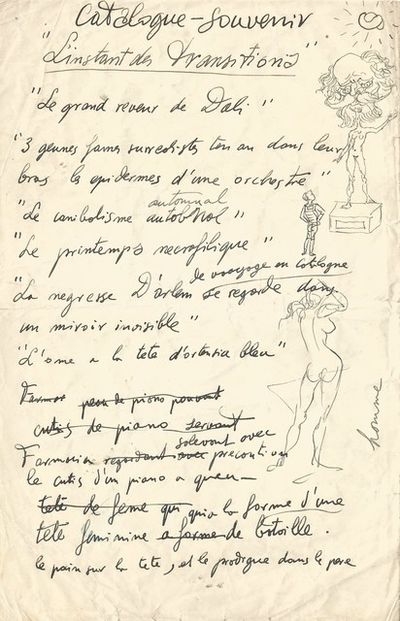 Catalogue-souvenir
"L'instant des transitions"
"Le grand reveur de Dali"
"3 geunes fames surrealistes ten an dans leur
bras la epidermes d'une orchestre"
automnal
"Le canibalisme"
"Le printemps necrofilique"
le voayage en Catalogne
"La negresse D'arlem se regarde dans
un miroir invisible"
"L'ome a la tete d'ortensia bleu"
homme
peau de piano pouvant
cutis de piano servant
solevant avec
regardant avec precontion
le cutis d'un piano a queu-
tete de feme qui qui a la forme d'une
tete feminine a forme de
le pain sur la tete, et le prodigue dans le pere